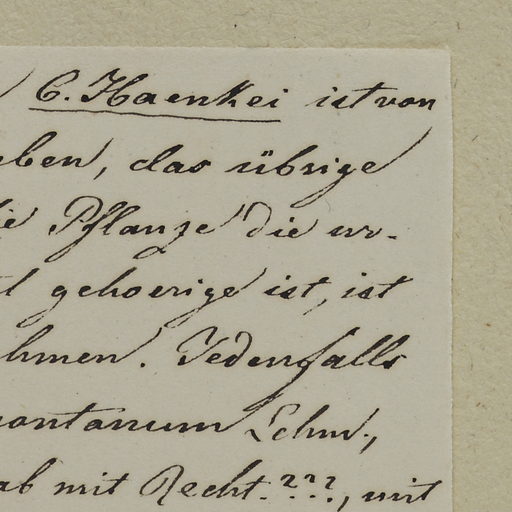 C. Haenkei ist von
eben, das übrige
die Pflanze die ur-
gehoerige ist, ist
hmen. Jedenfalls
montanum Lehm.,
ab mit Recht.???, mit